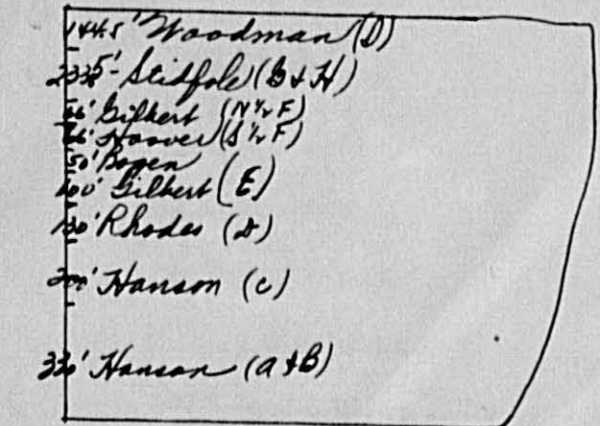 144.5' Woodman (D)
Stidfole (G & H)
66' Gilbert (N ½ F)
66' Hoover (S ½ F)
50' Bogen
100' Gilbert (E)
130' Rhodes (D)
200' Hanson (C)
330' Hanson (A & B)